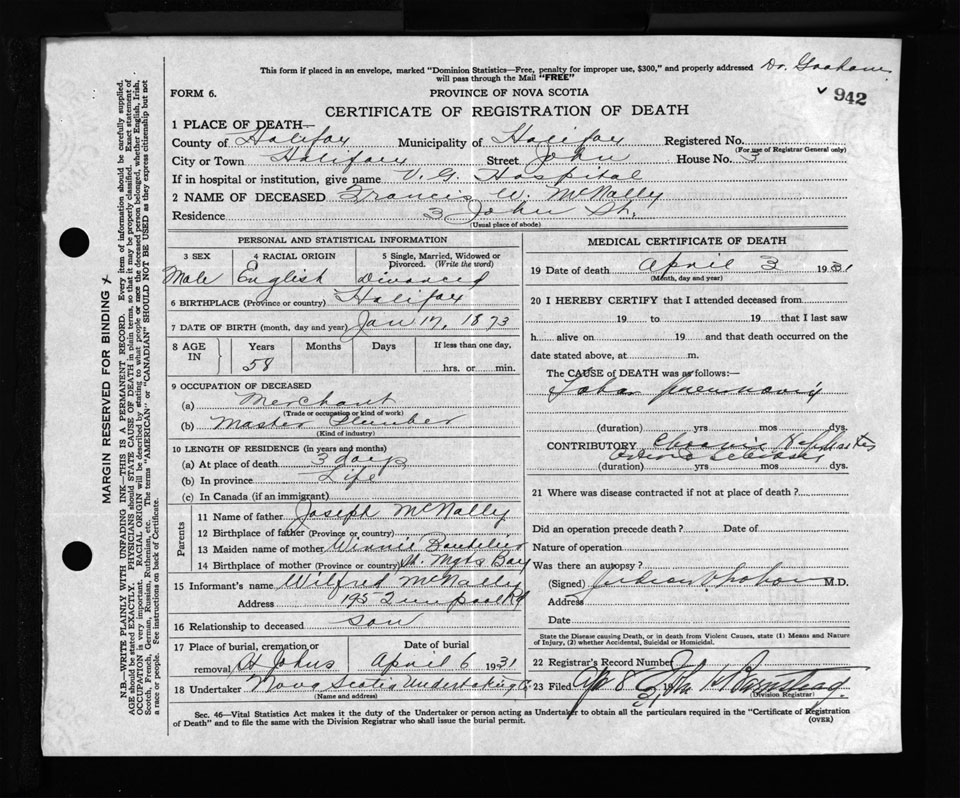 This form if placed in an envelope, marked "Dominion Statistics—Free, penalty for improper use, $300," and properly addressed
will pass through the Mail "FREE"
Dr. Graham
942
FORM 6.
PROVINCE OF NOVA SCOTIA
CERTIFICATE OF REGISTRATION OF DEATH
1 PLACE OF DEATH—
County of Halifax Municipality of Halifax Registered No.
(For use of Registrar General only)
City or Town Halifax Street John House No. 3
If in hospital or institution, give name V. G. Hospital
2 NAME OF DECEASED Francis W. McNally
Residence 3 John St.
(Usual place of abode)
PERSONAL AND STATISTICAL INFORMATION
3 SEX 4 RACIAL ORIGIN 5 Single, Married, Widowed or
Divorced. (Write the word)
Male English Divorced
6 BIRTHPLACE (Province or country) Halifax
7 DATE OF BIRTH (month, day and year) Jan 17, 1873
8 AGE IN Years Months Days If less than one day,
58 hrs. or min.
9 OCCUPATION OF DECEASED
(a) Merchant
(Trade or occupation or kind of work)
(b) Master Plumber
(Kind of industry)
10 LENGTH OF RESIDENCE (in years and months)
(a) At place of death 3 days
(b) In province Life
(c) In Canada (if an immigrant)
Parents
11 Name of father Joseph McNally
12 Birthplace of father (Province or country)
13 Maiden name of mother Winnie
14 Birthplace of mother (Province or country) St. Mgts Bay
15 Informant's name Wilfred McNally
Address 195 Rd
16 Relationship to deceased son
17 Place of burial, cremation or Date of burial
removal, St Johns April 6 1931
18 Undertaker Nova Scotia Undertaking Co.
(Name and address)
MEDICAL CERTIFICATE OF DEATH
19 Date of death April 3 1931
(Month, day and year)
20 I HEREBY CERTIFY that I attended deceased from
19 to 19 that I last saw
h alive on 19 and that death occurred on the
date stated above, at m.
The CAUSE OF DEATH was as follows:—
Lobar pneumonia
(duration) yrs mos. dys.
CONTRIBUTORY Chronic Nephritis
(duration) yrs mos. dys.
21 Where was disease contracted if not at place of death?
Did an operation precede death? Date of
Nature of operation
Was there an autopsy?
(Signed) M.D.
Address
Date
State the Disease causing Death, or in death from Violent Causes, state (1) Means and Nature
of Injury, (2) whether Accidental, Suicidal or Homicidal.
22 Registrar's Record Number
23 Filed Apr 8 John
(Division Registrar)
Sec. 46—Vital Statistics Act makes it the duty of the Undertaker or person acting as Undertaker to obtain all the particulars required in the "Certificate of Registration
of Death" and to file the same with the Division Registrar who shall issue the burial permit. (OVER)
MARGIN RESERVED FOR BINDING
N.B.—WRITE PLAINLY WITH UNFADING INK—THIS IS A PERMANENT RECORD. Every item of information should be carefully supplied.
AGE should be stated EXACTLY. PHYSICIANS should STATE CAUSE OF DEATH in plain terms, so that it may be properly classified. Exact statement of
OCCUPATION is very important. RACIAL ORIGIN will be described by stating to what people or race the deceased person belonged, whether English, Irish,
Scotch, French, German, Russian, Ruthenian, etc. The terms "AMERICAN" or "CANADIAN" SHOULD NOT BE USED as they express citizenship but not
a race or people. See instructions on back of Certificate.